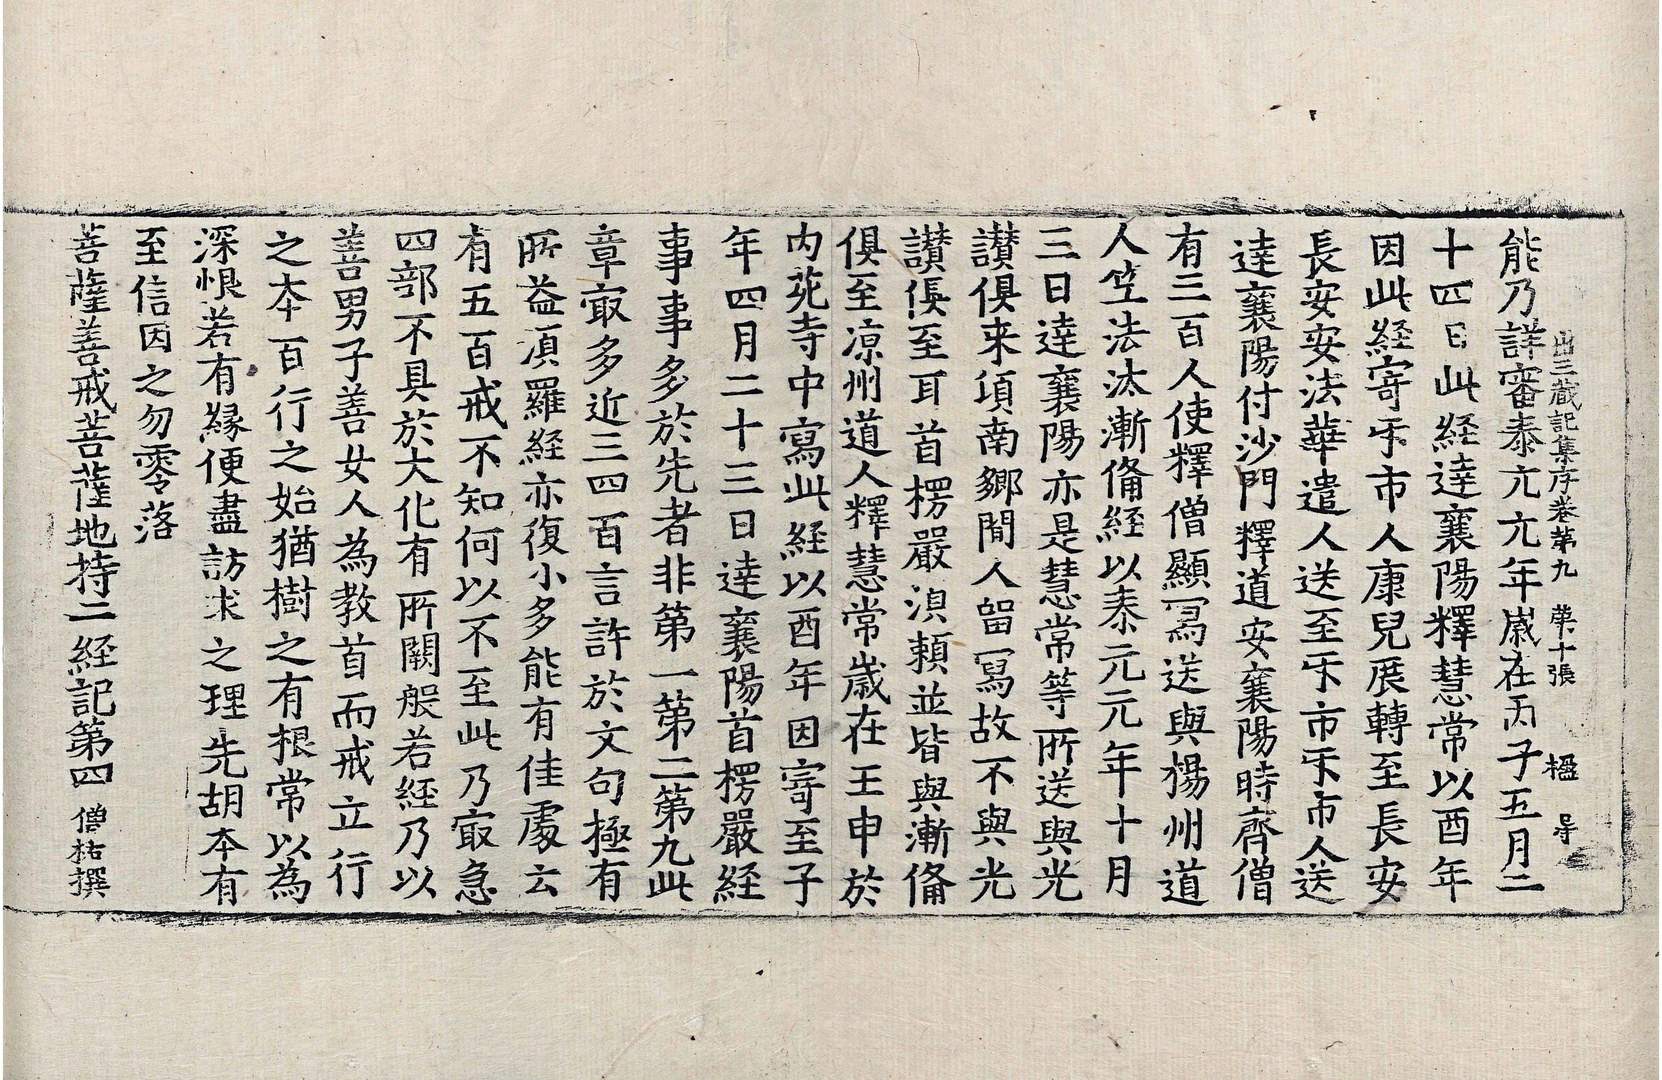 出三蔵記集序卷第九 第十張 楹 号
能乃詳審泰亢亢年歳在丙子五月二
十四日此経達襄陽釋慧常以酉年
因此経寄㸦市人康兒展轉至長安
長安安法華遣人送至㸦市㸦市人送
達襄陽付沙門釋道安襄陽時齊僧
有三百人使釋僧顯寫送與楊州道
人竺法汰漸俻経以泰元元年十月
三日達襄陽亦是慧常等所送與光
讃俱来項南鄉間人留寫故不與光
讃俱至耳首楞嚴湏頼並皆與漸俻
俱至凉州道人釋慧常歳在壬申於
内苑寺中寫此経以酉年因寄至子
年四月二十三日達襄陽首楞嚴経
事事多於先者非第一第二第九此
章㝡多近三四百言許於文句極有
所益湏羅経亦復小多能有佳處云
有五百戒不知何以不至此乃㝡急
四部不具於大化有所闕般若経乃以
善男子善女人為教首而戒立行
之本百行之始猶樹之有根常以為
深恨若有縁便盡訪求之理先胡本有
至信因之勿零落
菩薩善戒菩薩地持二経記第四 僧祐撰